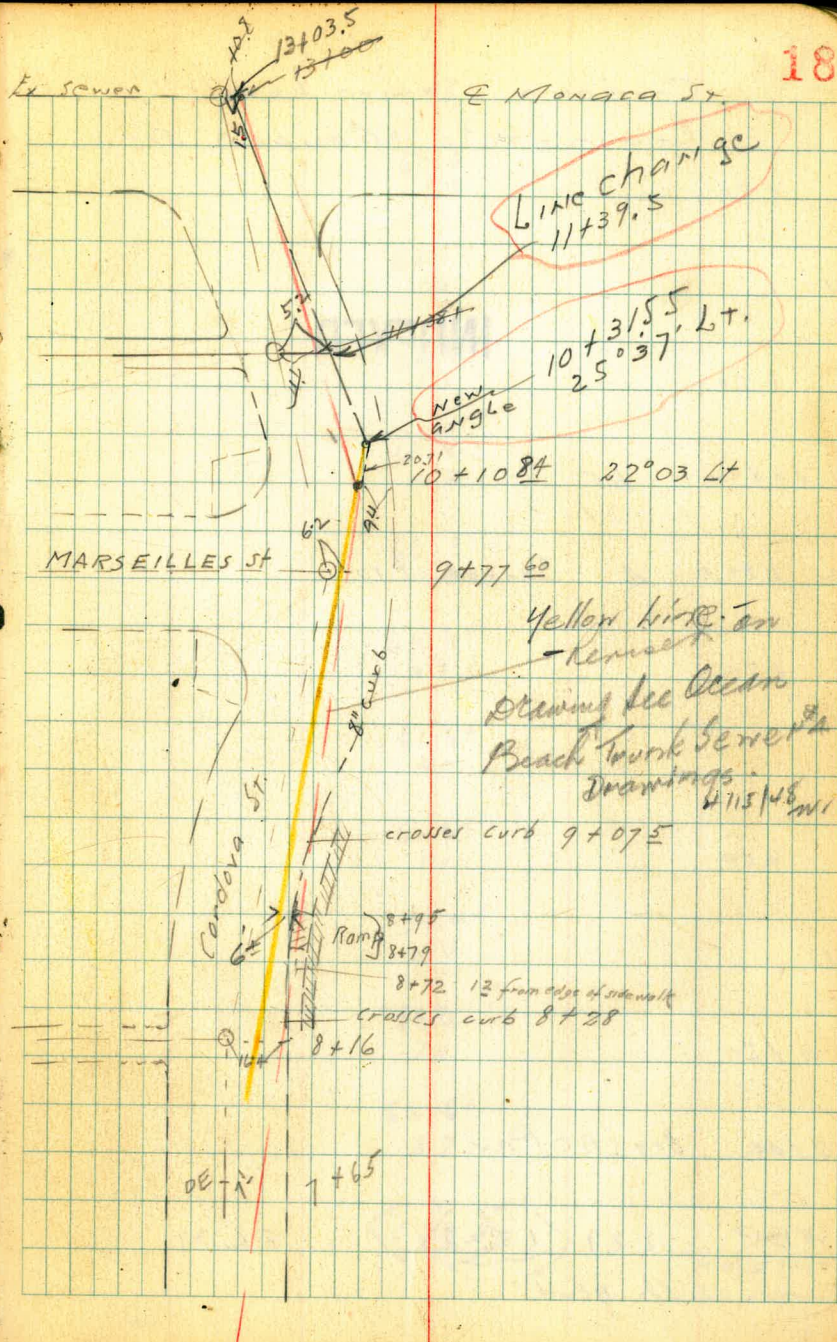 18
13+03.5
13+00
Ex sewer
15.5
℄ Monaca St.
Line change
11+39.5
5.2
11+38.1
10+31.55
25°37' Lt.
New angle
20.71
10+10 84 22°03 Lt
9.4
6.2
MARSEILLES St
9+77 60
Yellow Line on
Drawing see Ocean
Beach Trunk Sewer #2
Drawings.
8" curb
Cordova St.
crosses curb 9+07 5
Ramp } 8+95
8+79
8+72 12 from edge of sidewalk
crosses curb 8+28
8+16
7+65